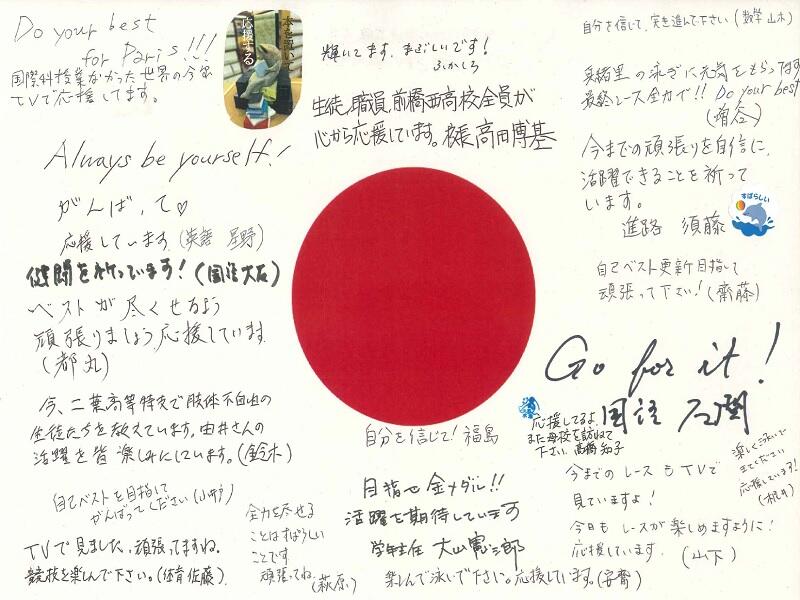 Do your best
for Paris!!!
国際科授業なかった世界の今を
TVで応援してます。
本を置いて
応援する
輝いてます。まぶしいです!
ふかしろ
生徒、職員、前橋西高校全員が
心から応援しています。校長 高田博基
自分を信じて、突き進んで下さい(数学 山木)
の泳ぎに元気をもらってます
最終レース全力で!! Do your best
(増谷)
今までの頑張りを自信に、
活躍できることを祈って
います。
進路 須藤
すばらしい
自己ベスト更新目指して
頑張って下さい!(齊藤)
Always be yourself!
がんばって♡
応援しています (英語 星野)
健闘を祈っています!(国語 大石)
ベストが尽くせるよう
頑張りましょう。応援しています。
(都丸)
今、二葉高等特支で肢体不自由の
生徒たちを教えています。由井さんの
活躍を皆楽しみにしています。(鈴木)
自己ベストを目指して
がんばってください(小井戸)
TVで見ました。頑張ってますね。
競技を楽しんで下さい。(体育 佐藤)
全力を尽せる
ことはすばらしい
ことです
頑張ってね。(萩原)
自分を信じて!福島
目指せ金メダル!!
活躍を期待しています
学年主任 大山憲三郎
楽しんで泳いで下さい。応援しています。
Go for it!
国語 石関
応援してるよ
また母校を訪ねて
下さい。高橋知子
楽しく泳いで
きてください
応援しています!
今までのレースもTVで
見ていますよ!
今日もレースが楽しめますように!
応援しています。(山下)